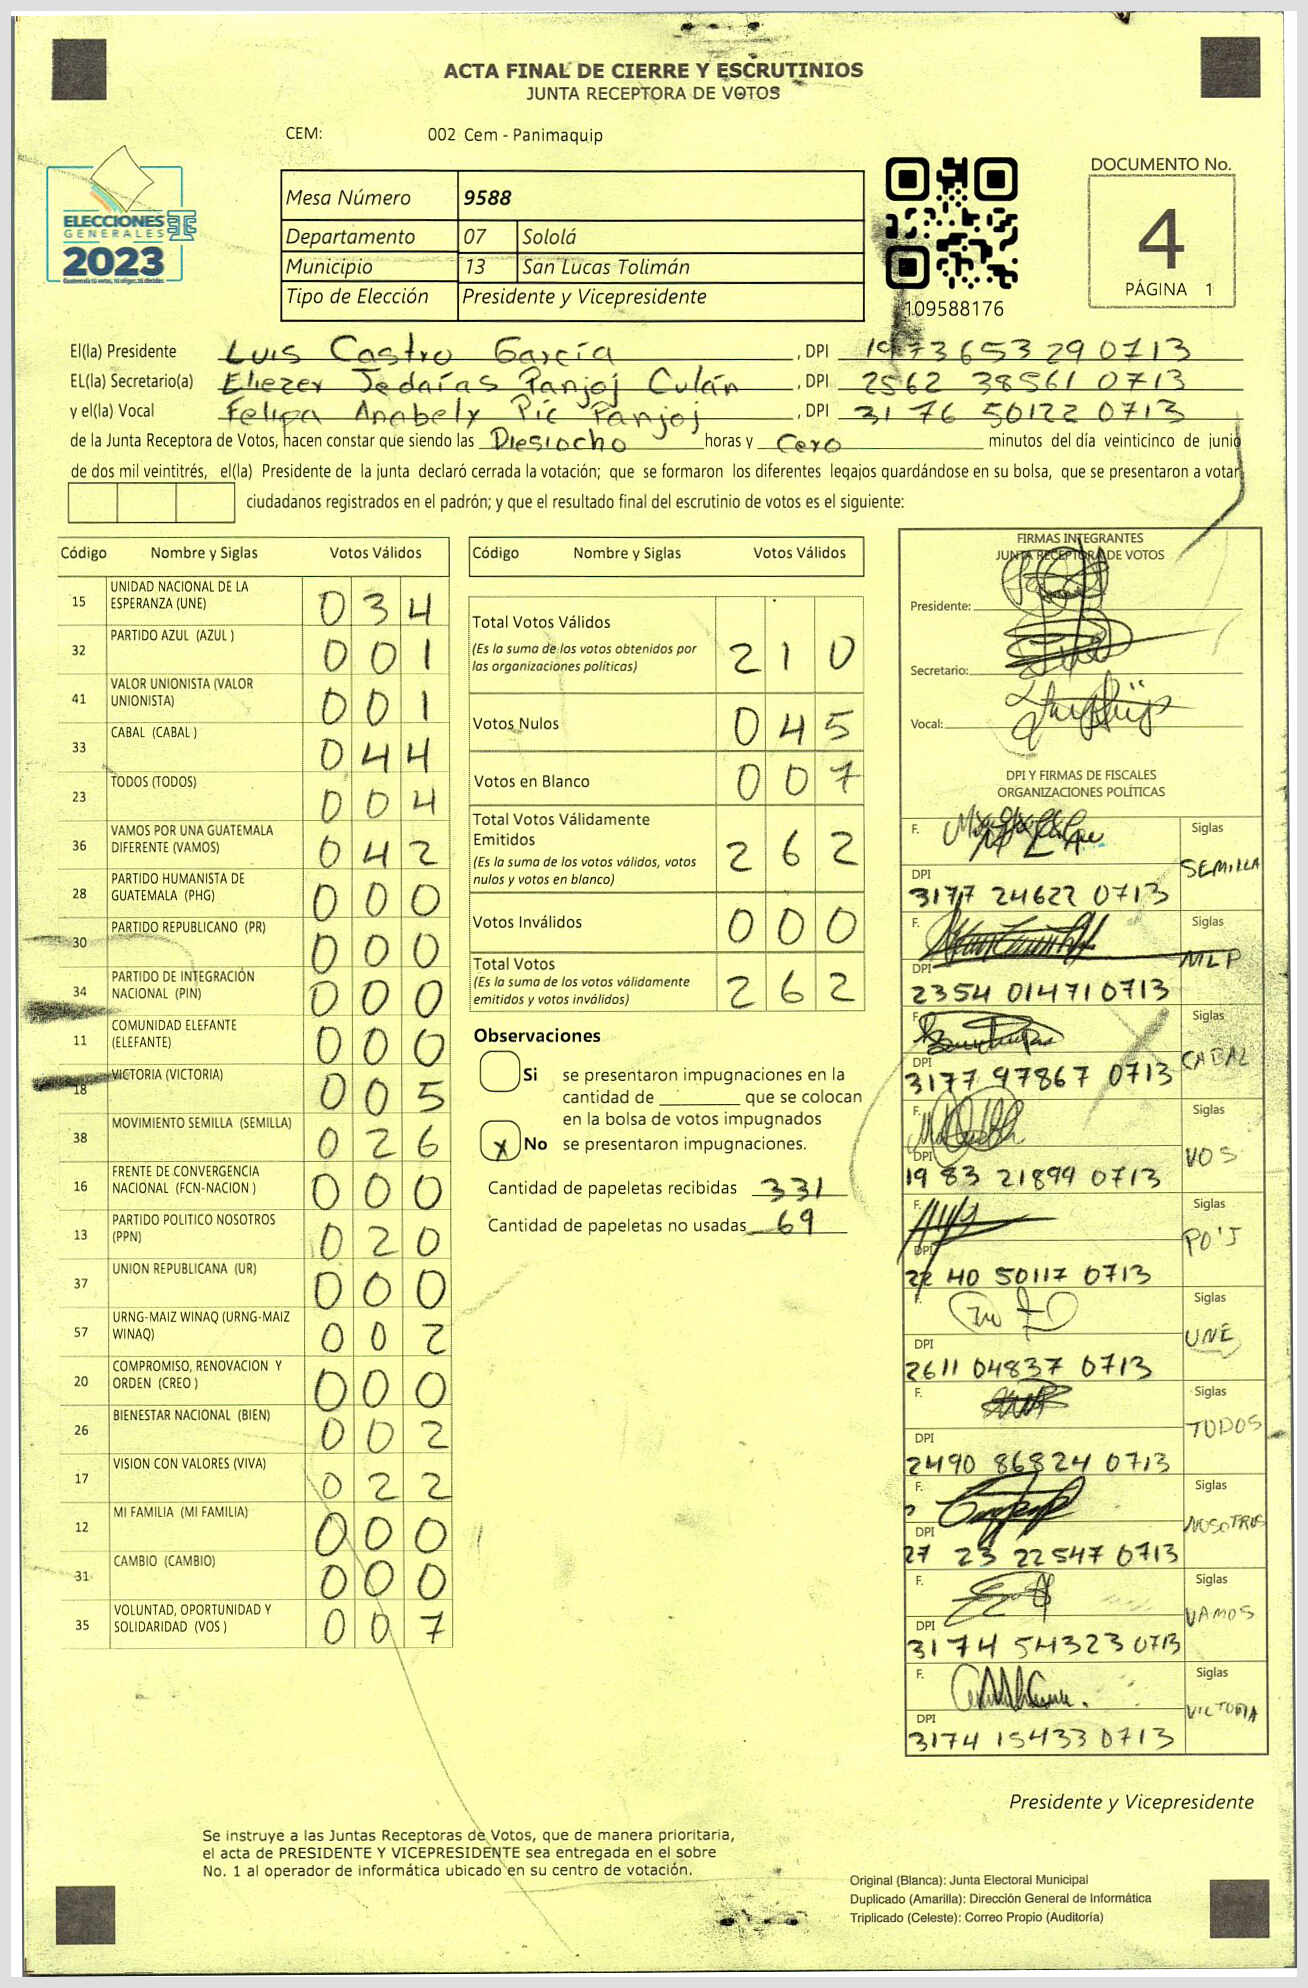 ACTA FINAL DE CIERRE Y ESCRUTINIOS
JUNTA RECEPTORA DE VOTOS
CEM: 002 Cem - Panimaquip
ELECCIONES
GENERALES
2023
Mesa Número 9588
Departamento 07 Sololá
Municipio 13 San Lucas Tolimán
Tipo de Elección Presidente y Vicepresidente
109588176
DOCUMENTO No.
4
PÁGINA 1
El(la) Presidente Luis Castro García , DPI 1973653290713
EL(la) Secretario(a) Eliezer Jedaías Panjoj Culán , DPI 2562 38561 0713
y el(la) Vocal Felipa Anabely Pic Panjoj , DPI 3176 50122 0713
de la Junta Receptora de Votos, hacen constar que siendo las Diesiocho horas y Cero minutos del día veinticinco de junio
de dos mil veintitrés, el(la) Presidente de la junta declaró cerrada la votación; que se formaron los diferentes legajos guardándose en su bolsa, que se presentaron a votar
ciudadanos registrados en el padrón; y que el resultado final del escrutinio de votos es el siguiente:
Código Nombre y Siglas Votos Válidos
15 UNIDAD NACIONAL DE LA ESPERANZA (UNE) 0 3 4
32 PARTIDO AZUL (AZUL ) 0 0 1
41 VALOR UNIONISTA (VALOR UNIONISTA) 0 0 1
33 CABAL (CABAL ) 0 4 4
23 TODOS (TODOS) 0 0 4
36 VAMOS POR UNA GUATEMALA DIFERENTE (VAMOS) 0 4 2
28 PARTIDO HUMANISTA DE GUATEMALA (PHG) 0 0 0
30 PARTIDO REPUBLICANO (PR) 0 0 0
34 PARTIDO DE INTEGRACIÓN NACIONAL (PIN) 0 0 0
11 COMUNIDAD ELEFANTE (ELEFANTE) 0 0 0
18 VICTORIA (VICTORIA) 0 0 5
38 MOVIMIENTO SEMILLA (SEMILLA) 0 2 6
16 FRENTE DE CONVERGENCIA NACIONAL (FCN-NACION ) 0 0 0
13 PARTIDO POLITICO NOSOTROS (PPN) 0 2 0
37 UNION REPUBLICANA (UR) 0 0 0
57 URNG-MAIZ WINAQ (URNG-MAIZ WINAQ) 0 0 2
20 COMPROMISO, RENOVACION Y ORDEN (CREO ) 0 0 0
26 BIENESTAR NACIONAL (BIEN) 0 0 2
17 VISION CON VALORES (VIVA) 0 2 2
12 MI FAMILIA (MI FAMILIA) 0 0 0
31 CAMBIO (CAMBIO) 0 0 0
35 VOLUNTAD, OPORTUNIDAD Y SOLIDARIDAD (VOS ) 0 0 7
Código Nombre y Siglas Votos Válidos
Total Votos Válidos
(Es la suma de los votos obtenidos por
las organizaciones políticas) 2 1 0
Votos Nulos 0 4 5
Votos en Blanco 0 0 7
Total Votos Válidamente
Emitidos
(Es la suma de los votos válidos, votos
nulos y votos en blanco) 2 6 2
Votos Inválidos 0 0 0
Total Votos
(Es la suma de los votos válidamente
emitidos y votos inválidos) 2 6 2
Observaciones
Si se presentaron impugnaciones en la
cantidad de ________ que se colocan
en la bolsa de votos impugnados
X No se presentaron impugnaciones.
Cantidad de papeletas recibidas 331
Cantidad de papeletas no usadas 69
FIRMAS INTEGRANTES
JUNTA RECEPTORA DE VOTOS
Presidente:
Secretario:
Vocal:
DPI Y FIRMAS DE FISCALES
ORGANIZACIONES POLÍTICAS
F. Siglas
DPI SEMILLA
3177 24622 0713
F. Siglas
DPI MLP
2354 01471 0713
F. Siglas
DPI CABAL
3177 97867 0713
F. Siglas
DPI VOS
1983 21899 0713
F. Siglas
DPI PO'J
2240 50117 0713
F. Siglas
DPI UNE
2611 04837 0713
F. Siglas
DPI TODOS
2490 86824 0713
F. Siglas
DPI NOSOTROS
27 23 22547 0713
F. Siglas
DPI VAMOS
3174 54323 0713
F. Siglas
DPI VICTORIA
3174 15433 0713
Presidente y Vicepresidente
Se instruye a las Juntas Receptoras de Votos, que de manera prioritaria,
el acta de PRESIDENTE Y VICEPRESIDENTE sea entregada en el sobre
No. 1 al operador de informática ubicado en su centro de votación.
Original (Blanca): Junta Electoral Municipal
Duplicado (Amarilla): Dirección General de Informática
Triplicado (Celeste): Correo Propio (Auditoría)